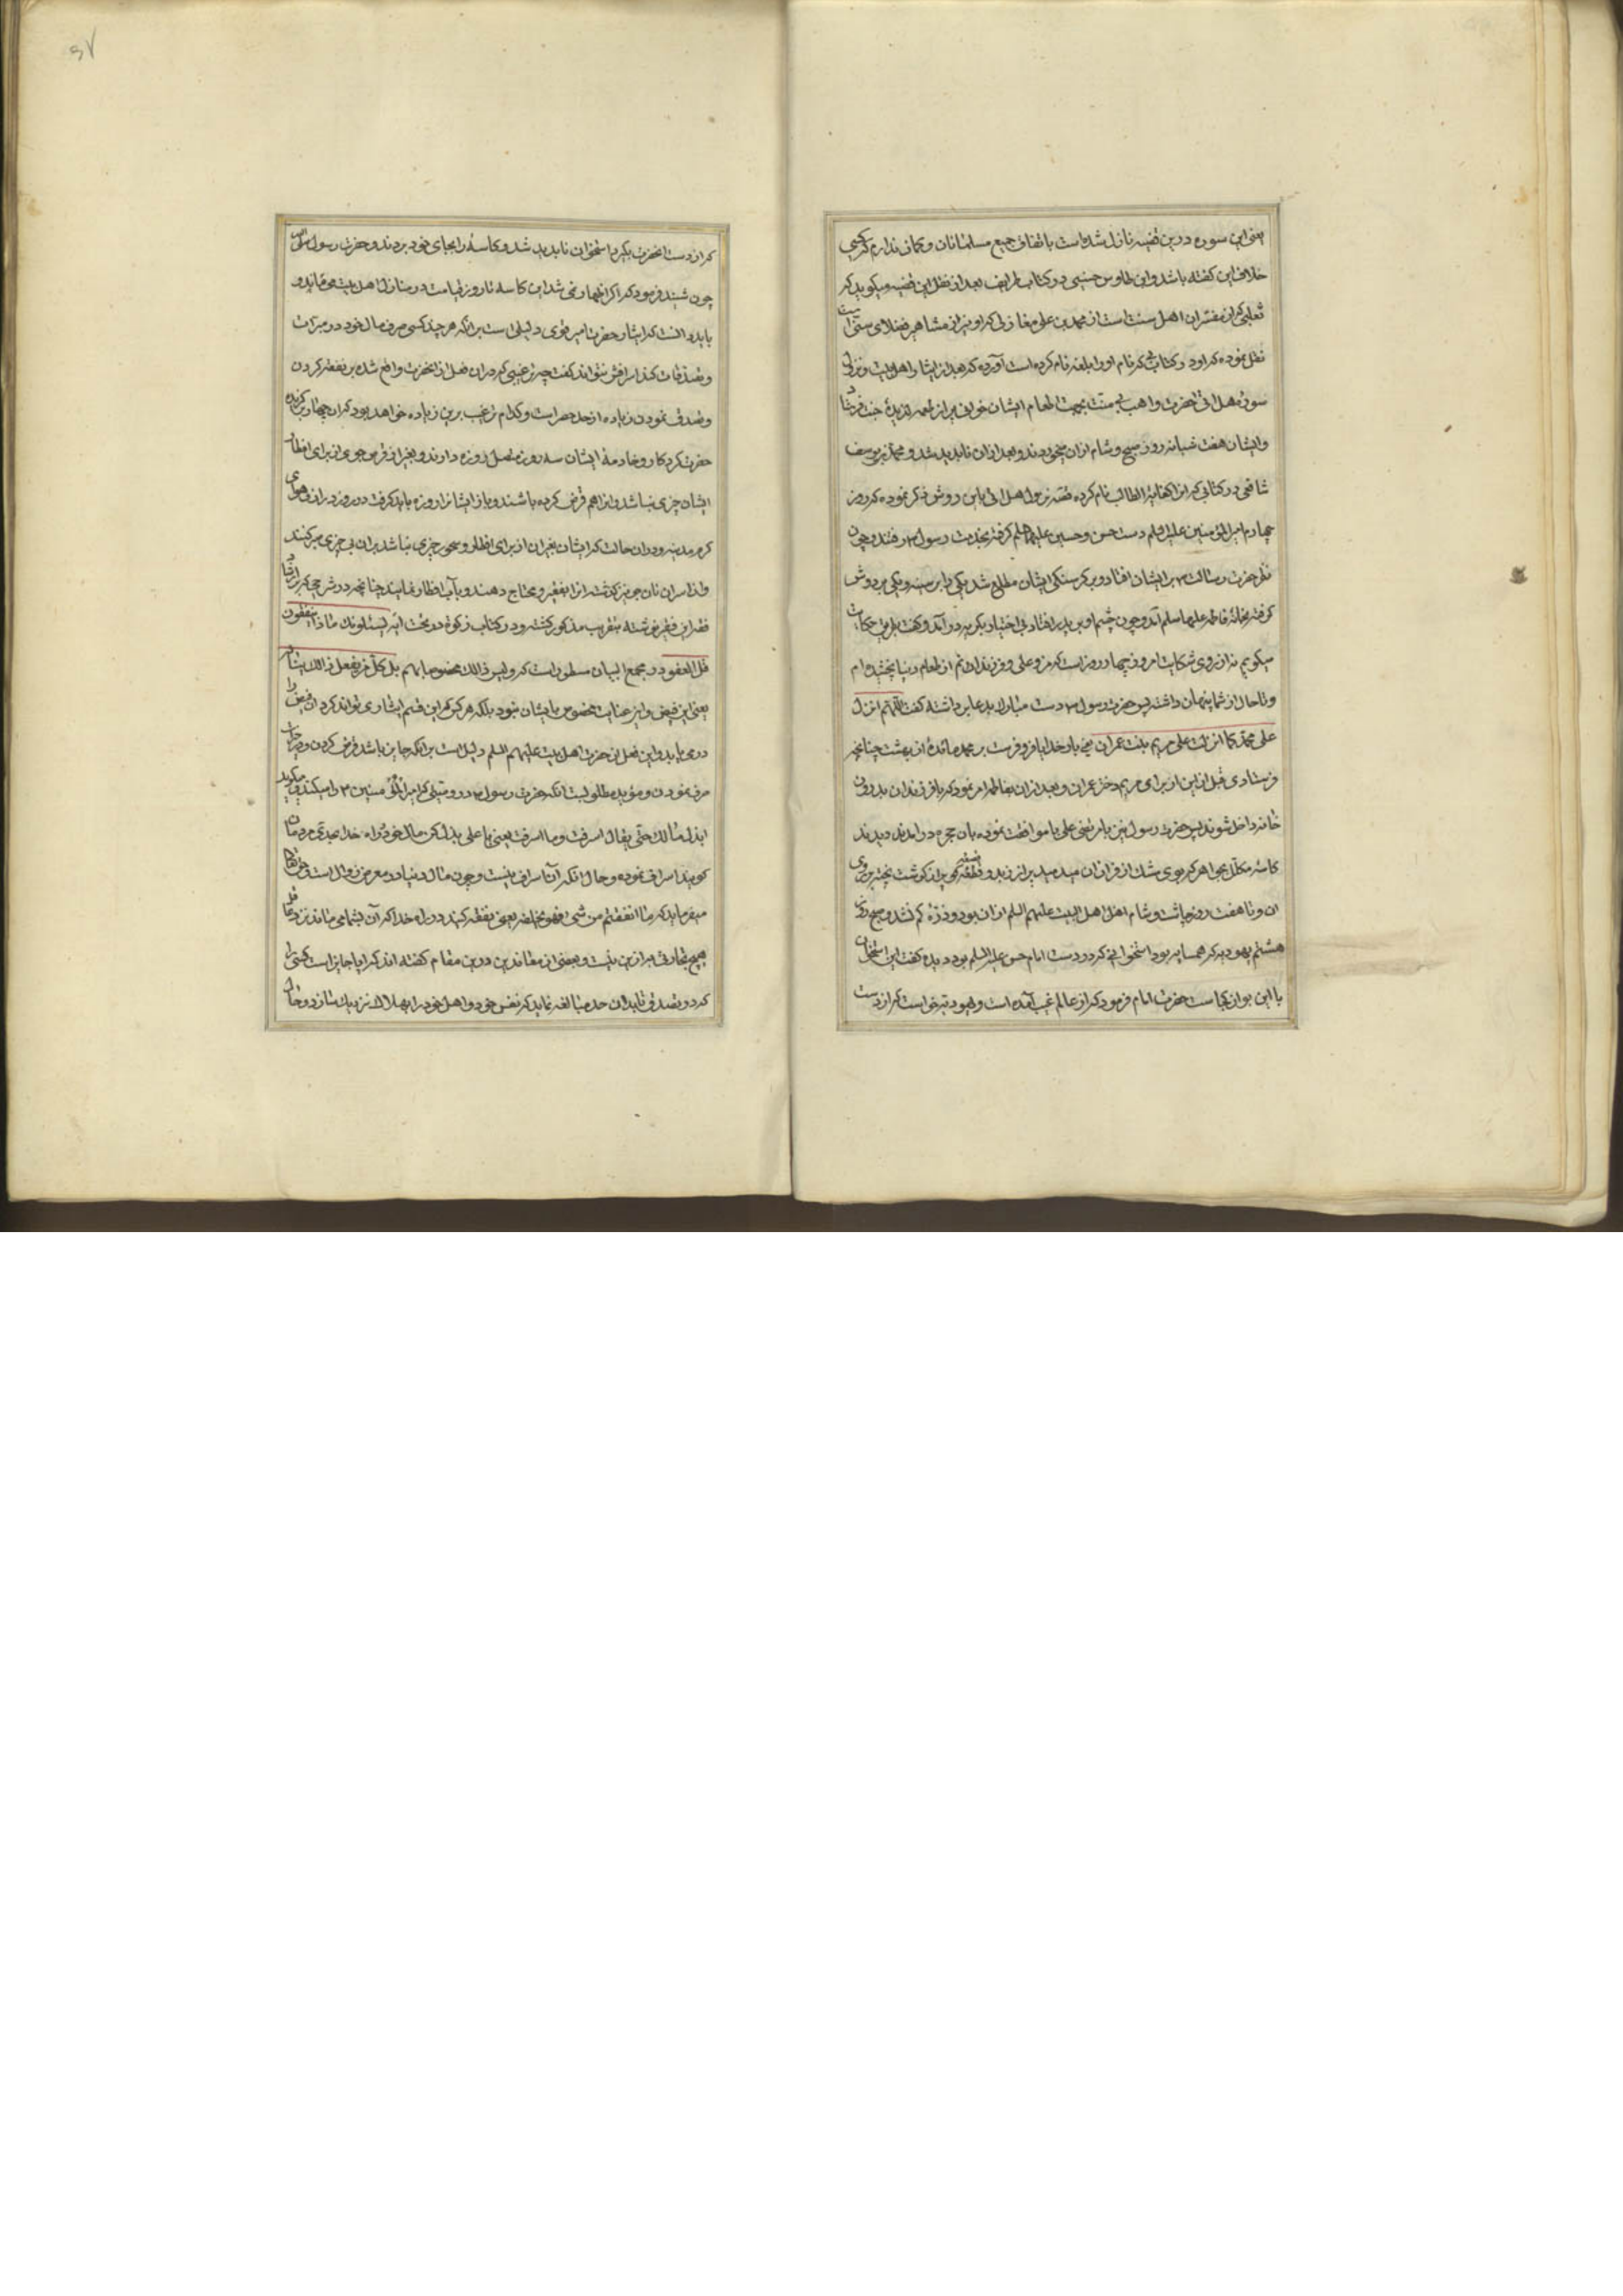 یعنی این سوره درین قضیه نازل شده است باتفاق جمیع مسلمانان و کمان ندارم که کسی
خلاف این کفته باشد و ابن طاوس حسینی در کتاب طرایف بعد از نقل این قضیه میکوید که
ثعلبی که از مفسران اهل سنت است از محمد بن علی مغازلی که او نیز از مشاهیر فضلای سنی است
نقل نموده که او در کتابی که نام او را بلغه نام کرده است آورده که بعد از ایثار اهل بیت و نزول
سورۀ هل اتی حضرت واهب بی منت بجهت اطعام ایشان خوانی پر از طعمه لذیذۀ جنت فرستاد
و ایشان هفت شبانه روز صبح و شام از ان میخوردند و بعد از ان ناپدید شد و محمد بن یوسف
شافعی در کتابی که انرا کفایة الطالب نام کرده قصه نزول هل اتی باین روش ذکر نموده که روز
چهارم امیر المؤمنین علیه السلم دست حسن و حسین علیهما السلم کرفته بخدمت رسول ص رفتند و چون
نظر حضرت رسالت ص بر ایشان افتاد و بر کرسنکی ایشان مطلع شد یکی را بر سینه و یکی بر دوش
کرفته بخانۀ فاطمه علیها سلم آمد و چون چشم او بر پدر افتاد بی اختیار بکریه در آمد و کفت بطریق حکایت
میکویم نه از روی شکایت امروز چهار روز است که من و علی و فرزندان از طعام دنیا نچشیده ام
و تا حال از شما پنهان داشته پس حضرت رسول ص دست مبارک بدعا برداشته کفت اللهم انزل
علی محمد کما انزلت علی مریم بنت عمران یعنی بار خدایا فرو فرست بر محمد مائدۀ از بهشت چنانچه
فرستادی قبل ازین از برای مریم دختر عمران و بعد از ان بفاطمه امر نمود که با فرزندان بدرون
خانه داخل شوند پس حضرت رسول نیز با مرتضی علی با موافقت نموده بان حجره در امدند دیدند
کاسۀ مکلل بجواهر که بوی مشک از فر از ان میدمید پر از ثرید و قطعه کوپر از کوشت پخته بر روی
ان و تا هفت روز چاشت و شام اهل اهل البیت علیهم السلم از ان بود و ذرۀ کم نشد و صبح روز
هشتم یهودیه که همسایه بود استخوانی که در دست امام حسن علیه السلم بود دیده کفت این استخوان
با این بو از کجاست حضرت امام فرمود که از عالم غیب آمده است و یهودیه خواست که از دست
که از دست انحضرت بکیرد استخوان ناپدید شد و کاسه را بجای خود بردند و حضرت رسول ص
چون شنید فرمود که اکر اظهار نمی شد این کاسه تا روز قیامت در منازل اهل بیت می ماند و
باید دانست که ایثار حضرت امیر قوی دلیلی است بر انکه هر چند کسی صرف مال خود در مبرات
و تصدقات کند اسرافش نتواند کفت چه ترغیبی که در ان فعل از انحضرت واقع شده بر نفقه کردن
و تصدق نمودن زیاده از حد حصر است و کدام ترغیب برین زیاده خواهد بود که ان چهار برکزیده
حضرت کردکار و خادمۀ ایشان سه روزه متصل روزه دارند و بغیر از قرص جوی از برای افطار
ایشان چیزی نباشد و انرا هم قرض کرده باشند و باز ایشانرا روزه باید کرفت در روز دراز و هوای
کرم مدینه و در ان حالت که ایشان بغیر ان از برای افطار و سحور چیزی نباشد بران بی چیزی صبر کنند
و اذا سر ان نان جوین کذشته انرا بفقیر و محتاج دهند و بآب افطار نمایند چنانچه در شرح بر ارشاد
فقه این فقیر نوشته بتقریب مذکور کشته و در کتاب زکوة در تحت ایه یسئلونک ماذا ینفقون
قل العفو و در مجمع البیان مسطور است که و لیس ذالک مخصوصا بهم بل کل من یفعل ذالک یشارک
یعنی این فیض و این عنایت مخصوص بایشان نبود بلکه هر کس که این قسم ایثاری تواند کرد ان فیض را
در می یابد و این فعل از حضرت اهل بیت علیهم السلم دلیل است بر انکه جایز باشد قرض کردن و در خیرات
صرف نمودن و مؤید مطلوبست انکه حضرت رسول ص در وصیتی که امیر المؤمنین ص را میکند میکوید
ابذل مالک حتی یقال اسرفت و ما اسرفت یعنی یا علی بذل کن مال خود در راه خدا بحدی که مردمان
کویند اسراف نموده و حال انکه آن اسراف نیست و چون مال دنیا در معرض زوال است حق تعالی
میفرماید که ما انفقتم من شیء فهو یخلفه یعنی نفقه کنید در راه خدا که آن بشما می ماند نزد عاقل
هیچ تجارتی به ازین نیست و بعضی از معاندین درین مقام کفته اند که ایا جایز است کسی را
که در تصدق تا بدان حد مبالغه نماید که نفس خود و اهل خود را بهلاک نزدیک سازد و حال